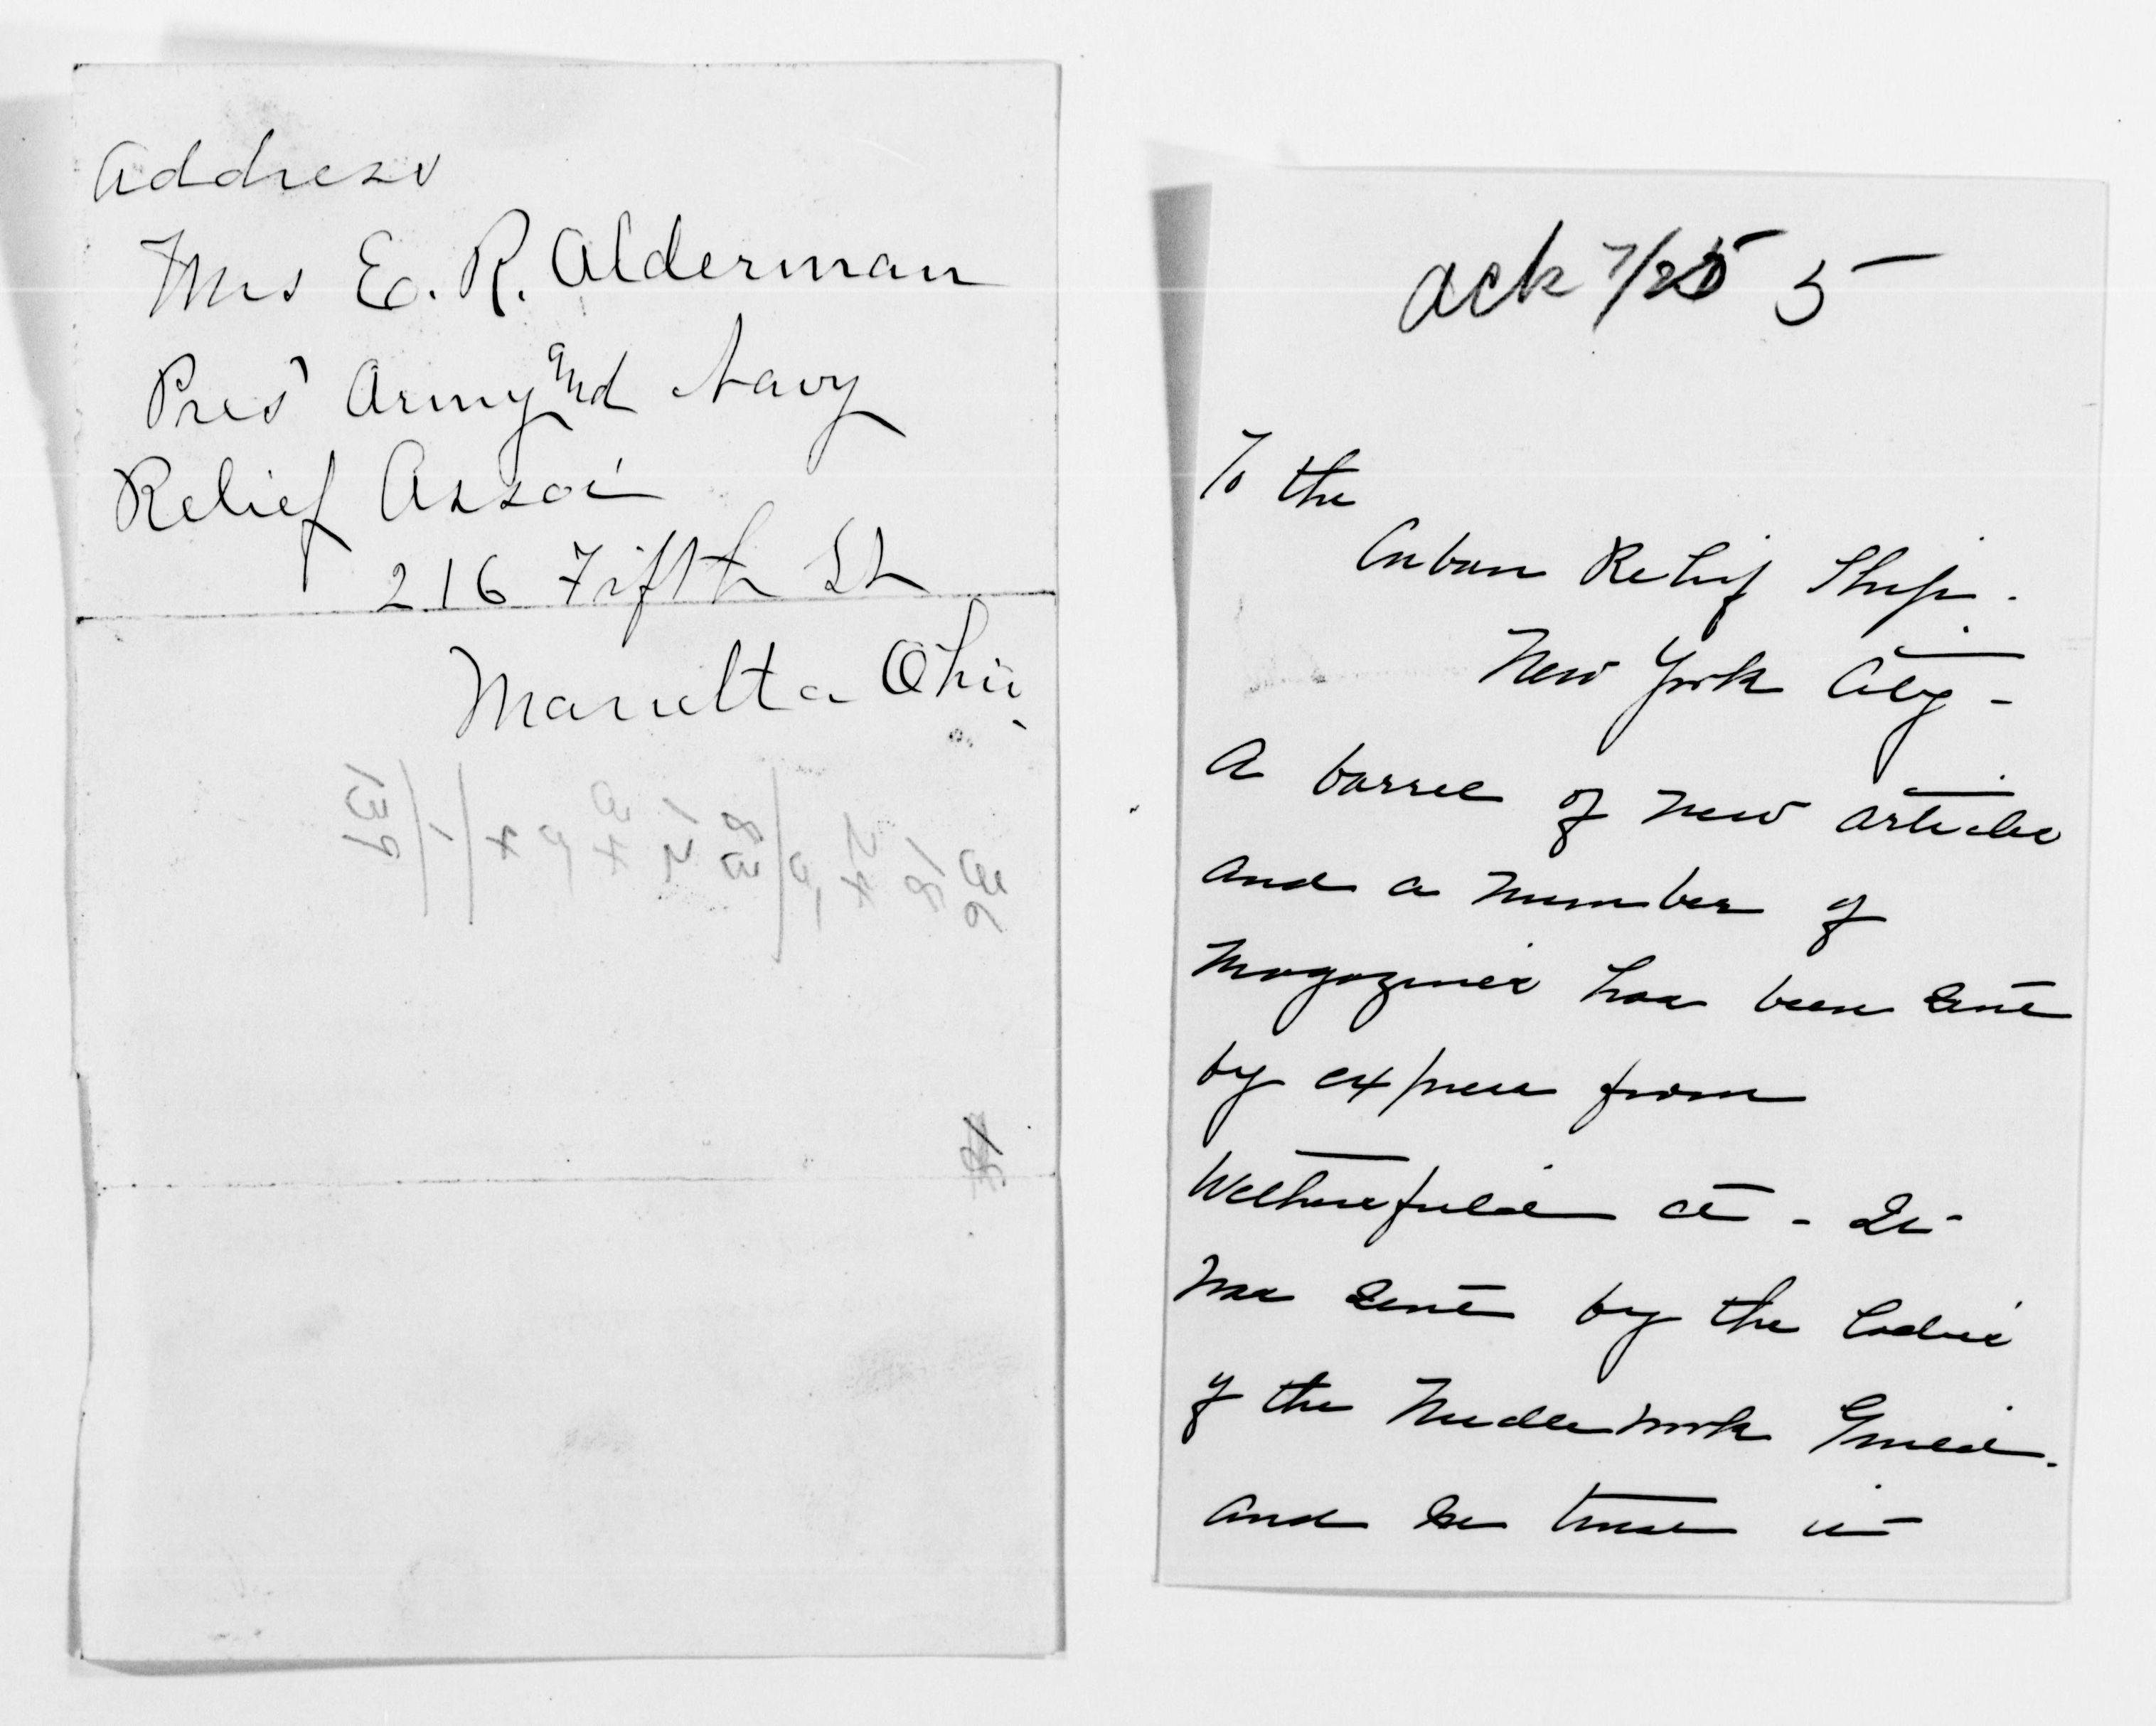 Address
Mrs E. R. Alderman
Pres Army and Navy
Relief Assoc
216 Fifth St
Marietta Ohio.
139
ack 7/25 5
To the
Cuban Relief Ship.
New York City -
A barrel of new articles
and a number of
Magazines has been sent
by express from
Wethersfield Ct - It
was sent by the ladies
of the Needlework Guild.
and we trust it